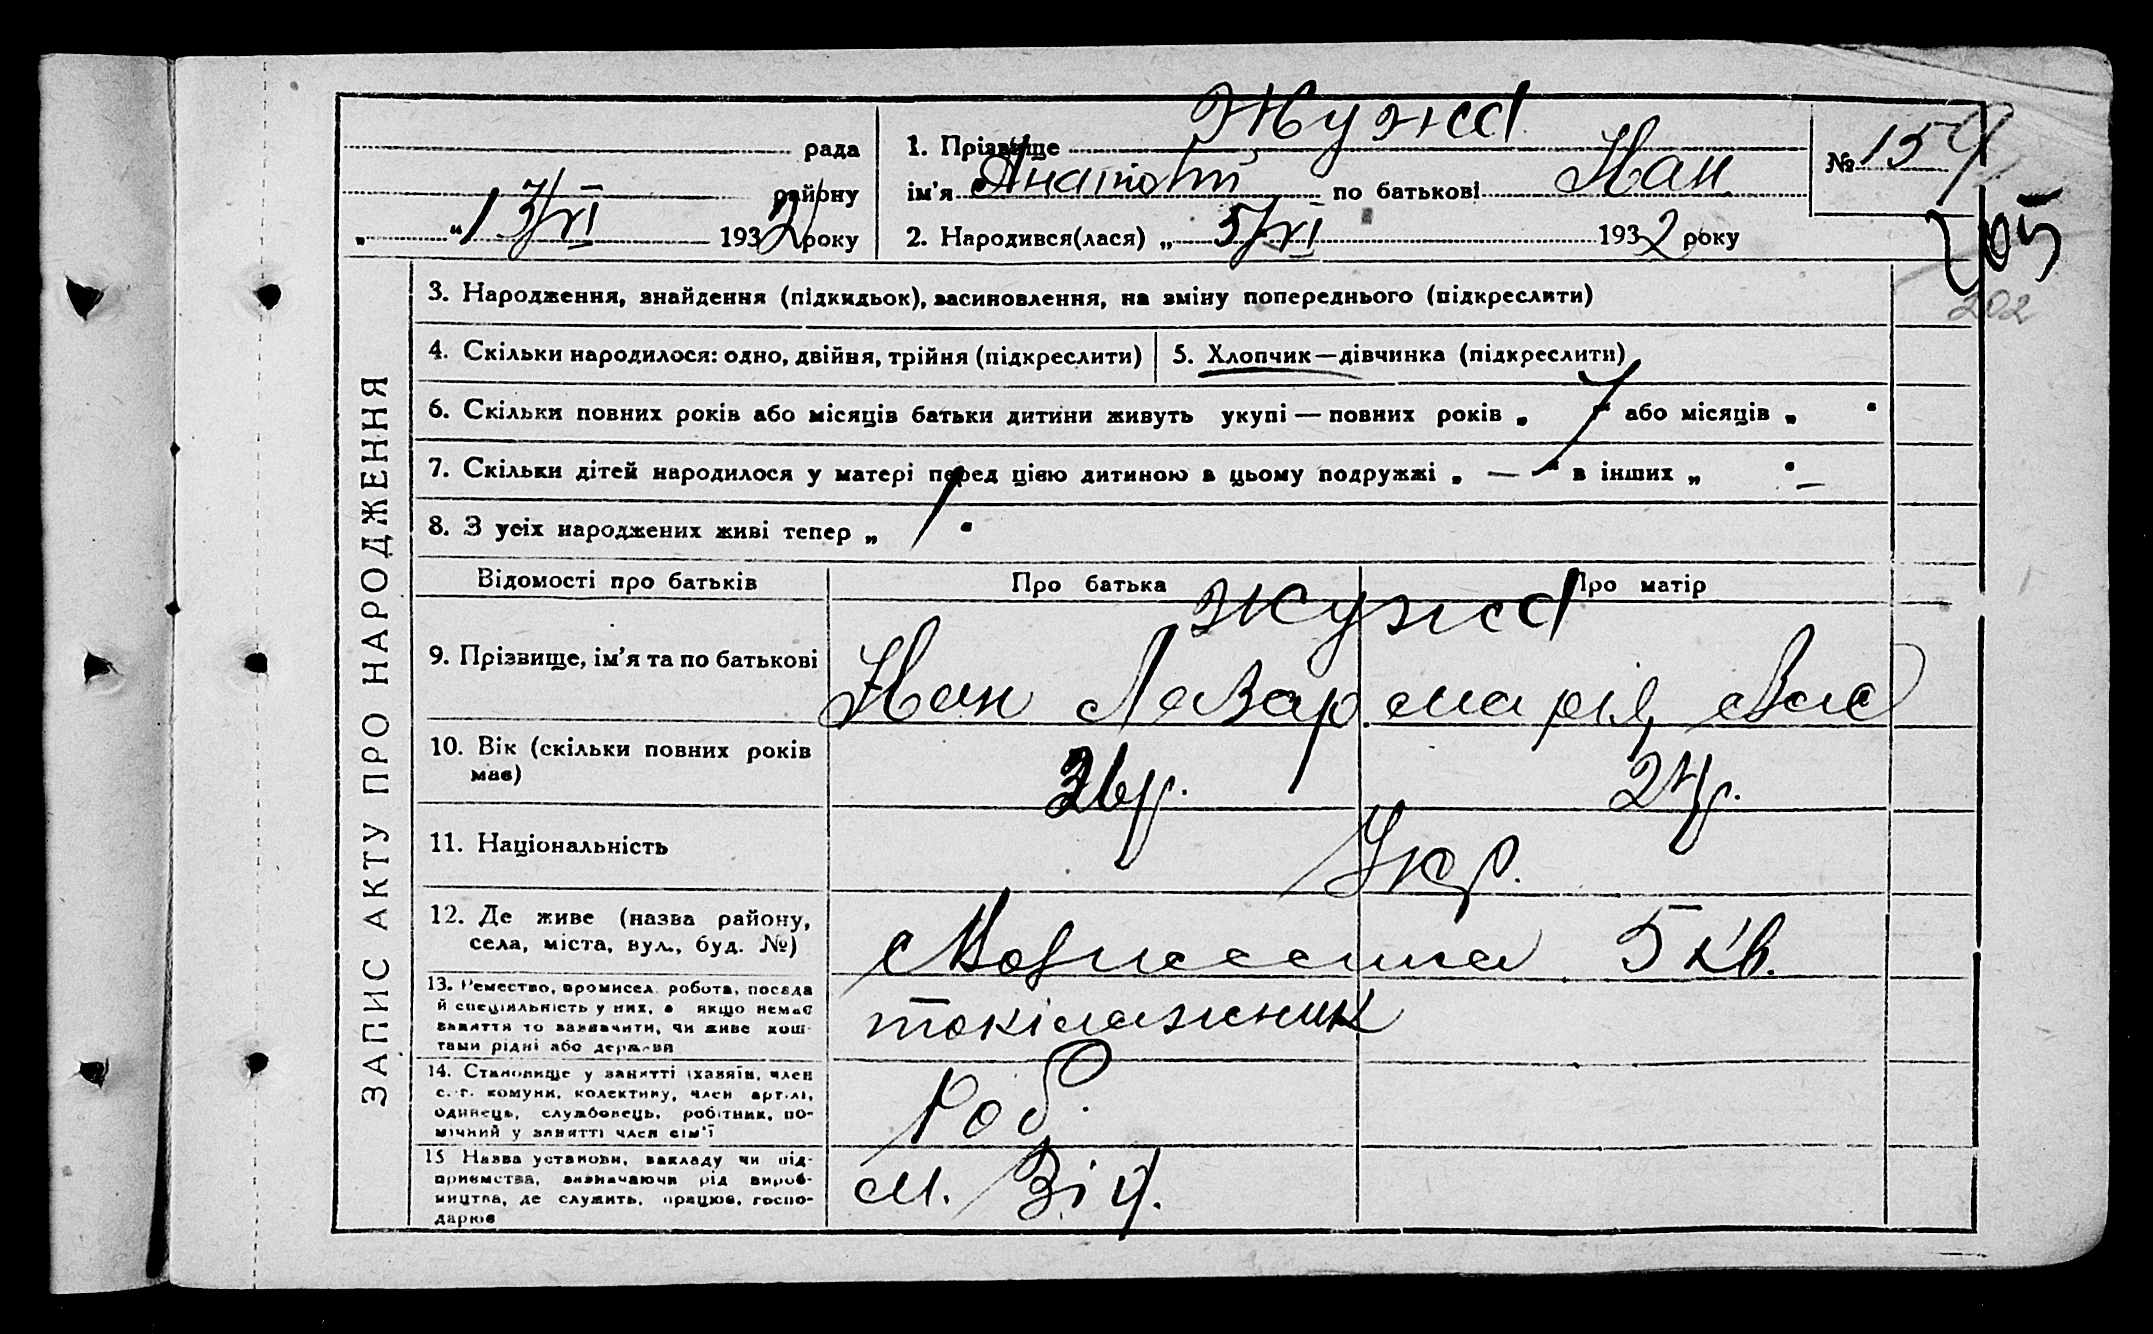 Жужа
рада
1. Прізвище
№ 159
району
ім'я Анатолій по батькові Иван
205
„ “ 13/VI 1932 року
2. Народився(лася) „ 5/VI 1932 року
202
ЗАПИС АКТУ ПРО НАРОДЖЕННЯ
3. Народження, знайдення (підкидьок), засиновлення, на зміну попереднього (підкреслити)
4. Скільки народилося: одно, двійня, трійня (підкреслити)
5. Хлопчик—дівчинка (підкреслити)
6. Скільки повних років або місяців батьки дитини живуть укупі — повних років „ “ або місяців „ “
7. Скільки дітей народилося у матері перед цією дитиною в цьому подружжі „ — “ в інших „ “ —
8. З усіх народжених живі тепер „ “
Відомості про батьків
Про батька
Про матір
Жужа
9. Прізвище, ім'я та по батькові
Иван Лазар
Марія Вас
10. Вік (скільки повних років
має)
26 р.
24 р.
11. Національність
Укр.
12. Де живе (назва району,
села, міста, вул., буд. №)
5 кв.
13. Ремество, промисел, робота, посада
й спеціяльність у них, а якщо немає
заняття то зазначити, чи живе кош-
тами рідні або держави
14. Становище у занятті (хазяїн, член
с.-г. комуни, колективу, член артілі,
одинець, службовець, робітник, по-
мічний у занятті член сім'ї
Роб.
15 Назва установи, закладу чи під-
приємства, зазначаючи рід вироб-
ництва, де служить, працює, госпо-
дарює